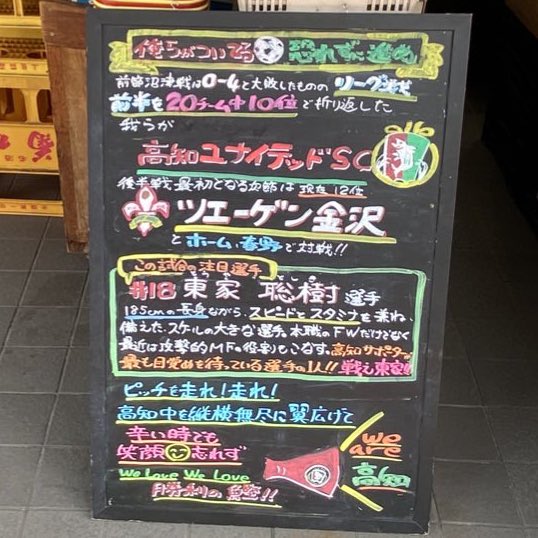 俺らがついてる 恐れずに進め
前節沼津戦は0-4と大敗したものの リーグ戦
前半を20チーム中10位で折り返した
我らが
高知ユナイテッドSC
後半戦最初となる次節は 現在12位
ツエーゲン金沢
とホーム、春野で対戦!!
この試合の注目選手
#18 東家 聡樹 選手
185cmの長身ながら、スピードとスタミナを兼ね
備えた、スケルの大きな選手。本職のFWだけでなく
最近は攻撃的MFの役割もこなす。高知サポーターが
最も目覚めを待っている選手の1人!! 戦え東家!!
ピッチを走れ!走れ!
高知中を縦横無尽に翼広げて
辛い時でも
笑顔忘れず
We Love We Love
勝利の鰹!!
We
are
高知